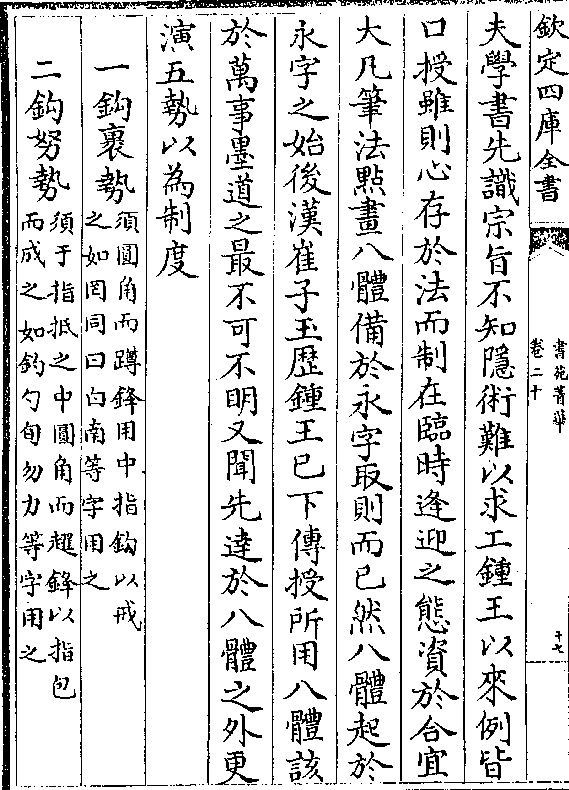 欽定四庫全書
書苑菁華
卷二十
十七
夫學書先識宗旨不知隱術難以求工鍾王以來例皆
口授雖則心存於法而制在臨時逢迎之態資於合宜
大凡筆法點畫八體備於永字取則而已然八體起於
永字之始後漢崔子玉歴鍾王已下傳授所用八體該
於萬事墨道之最不可不明又聞先達於八體之外更
演五勢以為制度
一鈎裹勢
須圓角而蹲鋒用中指鈎以戒
之如罔同曰白南等字用之
二鈎努勢
須于指抵之中圓角而趯鋒以指包
而成之如鈞勺旬勿力等字用之